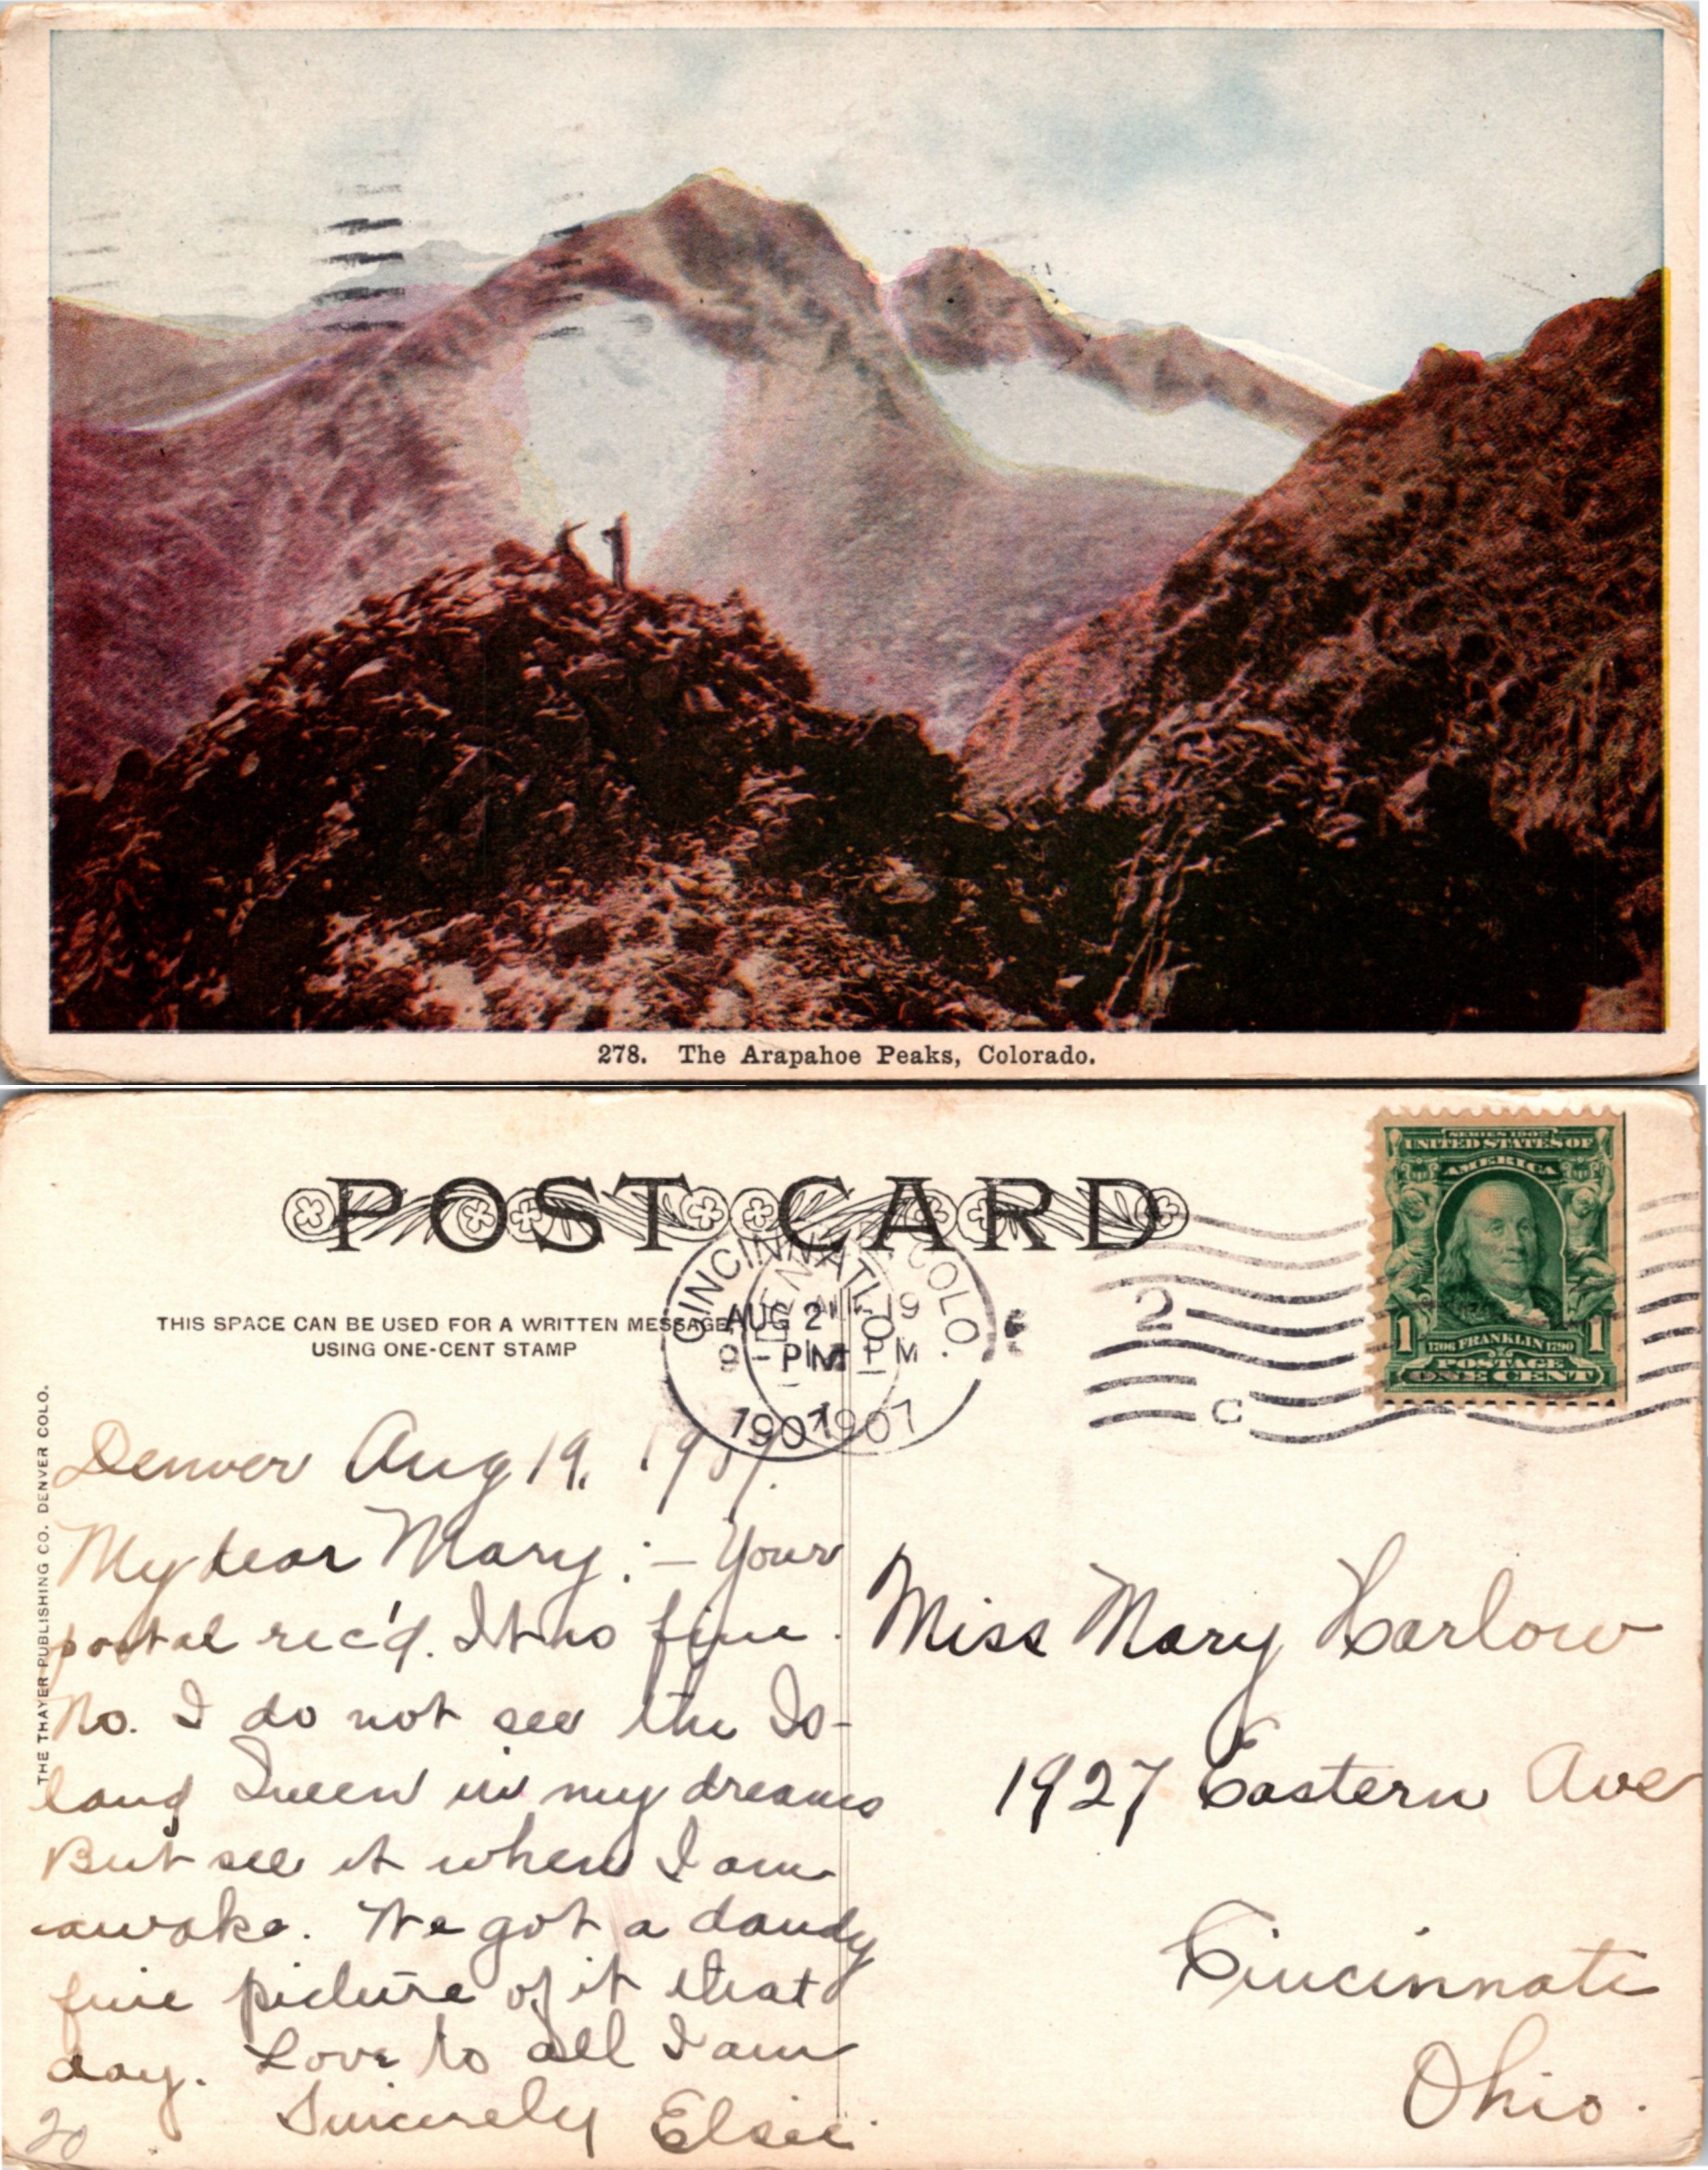 278. The Arapahoe Peaks, Colorado.
POST CARD
SERIES 1902
UNITED STATES OF
AMERICA
1 1706 FRANKLIN 1790 1
POSTAGE
ONE CENT
THIS SPACE CAN BE USED FOR A WRITTEN MESSAGE
USING ONE-CENT STAMP
CINCINNATI, O.
AUG 2
9 - PM
1907
COLO.
PM
1907
2
C
THE THAYER PUBLISHING CO. DENVER COLO.
Denver Aug 19, 1907.
My dear Mary:— Your
postal rec'd. It is fine.
No. I do not see the Is-
land Queen in my dreams
But see it when I am
awake. We got a dandy
fine picture of it that
day. Love to all I am
Sincerely Elsie.
20
Miss Mary Harlow
1927 Eastern Ave
Cincinnati
Ohio.